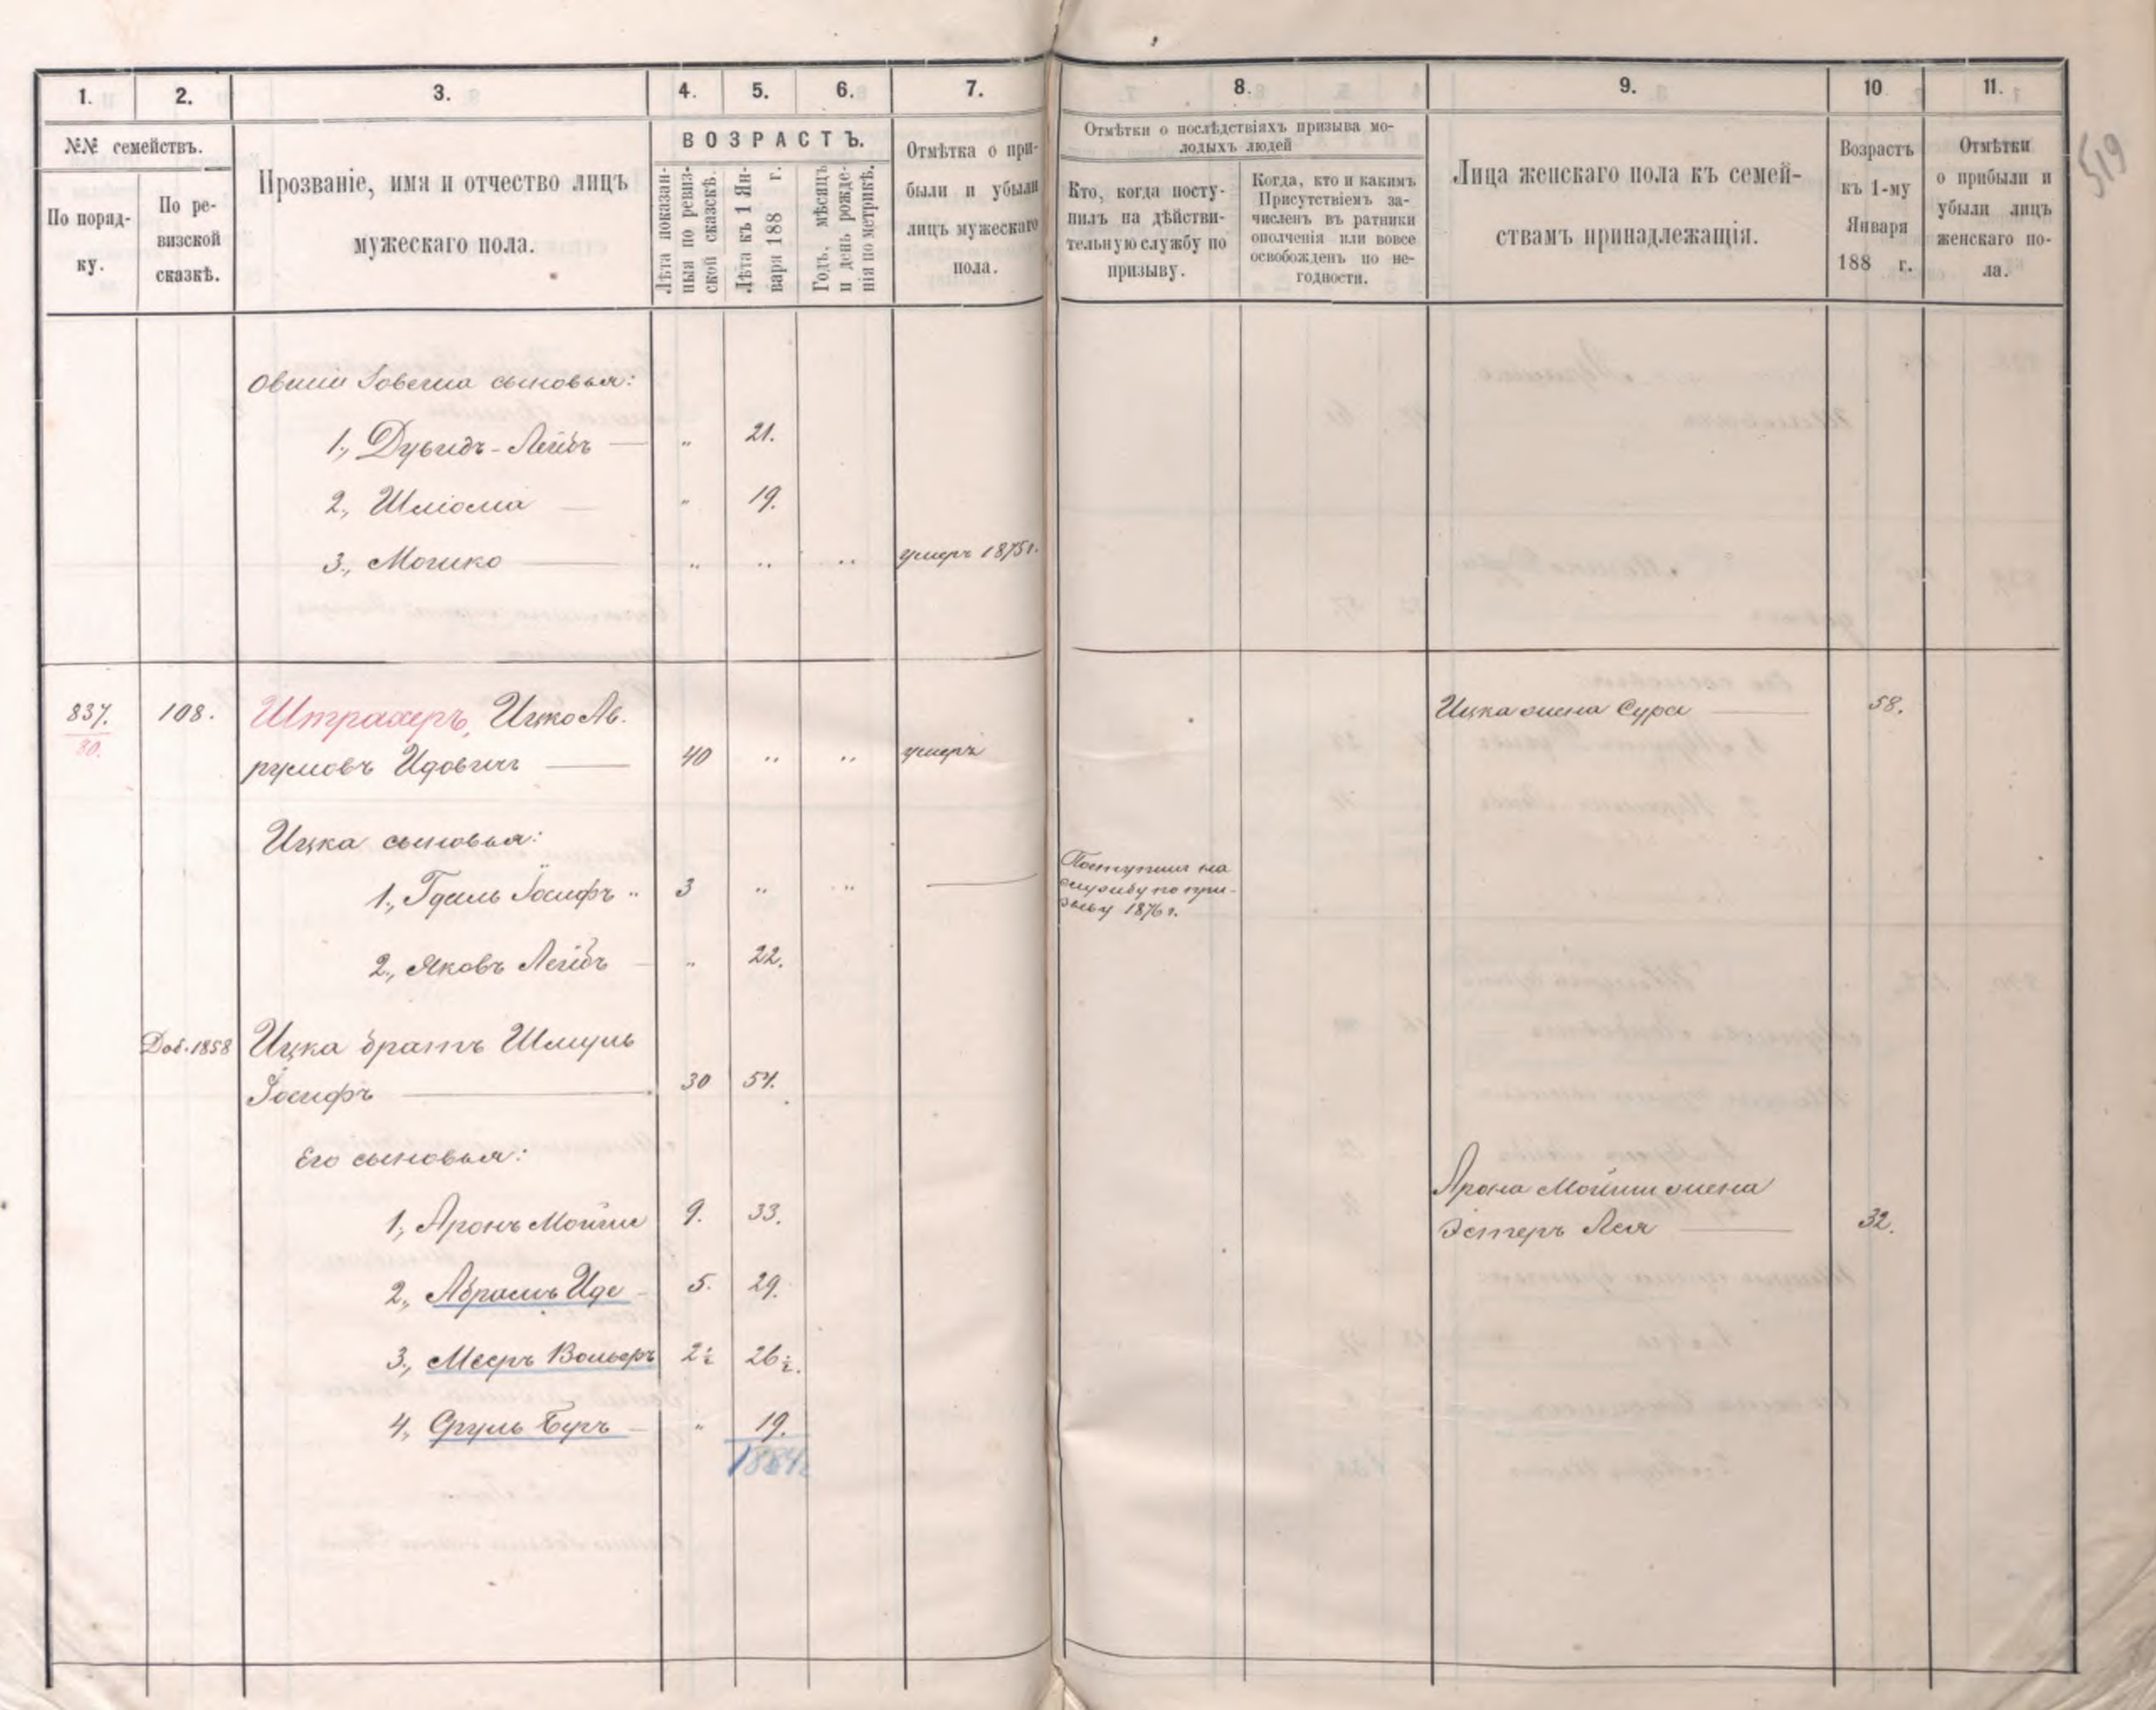 519
1.
2.
3.
4.
5.
6.
7.
8.
9.
10
11.
№№ семействъ.
По поряд-
ку.
По ре-
визской
сказкѣ.
Прозваніе, имя и отчество лицъ
мужескаго пола.
ВОЗРАСТЪ.
Лѣта показан-
ныя по ревиз-
ской сказкѣ.
Лѣта къ 1 Ян-
варя 188 г.
Годъ, мѣсяцъ
и день рожде-
нія по метрикѣ.
Отмѣтка о при-
были и убыли
лицъ мужескаго
пола.
Отмѣтки о послѣдствіяхъ призыва мо-
лодыхъ людей
Кто, когда посту-
пилъ на дѣйстви-
тельную службу по
призыву.
Когда, кто и какимъ
Присутствіемъ за-
численъ въ ратники
ополченія или вовсе
освобожденъ по не-
годности.
Лица женскаго пола къ семей-
ствамъ принадлежащія.
Возрастъ
къ 1-му
Января
188 г.
Отмѣтки
о прибыли и
убыли лицъ
женскаго по-
ла.
сыновья:
1., Дувидъ-Лейбъ — „ 21.
2., Шлiома — „ 19.
3., Мошко — „ „ „ умеръ 1875 г.
837. 108. Штрахеръ, Ицко Ав- Ицка жена Сура — 58.
80.
румовъ Идовичъ — 40 „ „ умеръ
Ицка сыновья:
1., Гдаль Іосифъ „ 3 „ „ — Поступилъ на
службу по при-
зыву 1876 г.
2., Яковъ Лейбъ — „ 22.
Доб. 1858 Ицка братъ Шмуль
Іосифъ — 30 54.
Его сыновья:
1., Аронъ Мойше 9. 33. Арона Мойши жена
Эстеръ Лея — 32.
2., Абрамъ Иде — 5. 29.
3., Мееръ Вольфъ 2½ 26½.
4., Сруль Беръ — „ 19.
1884